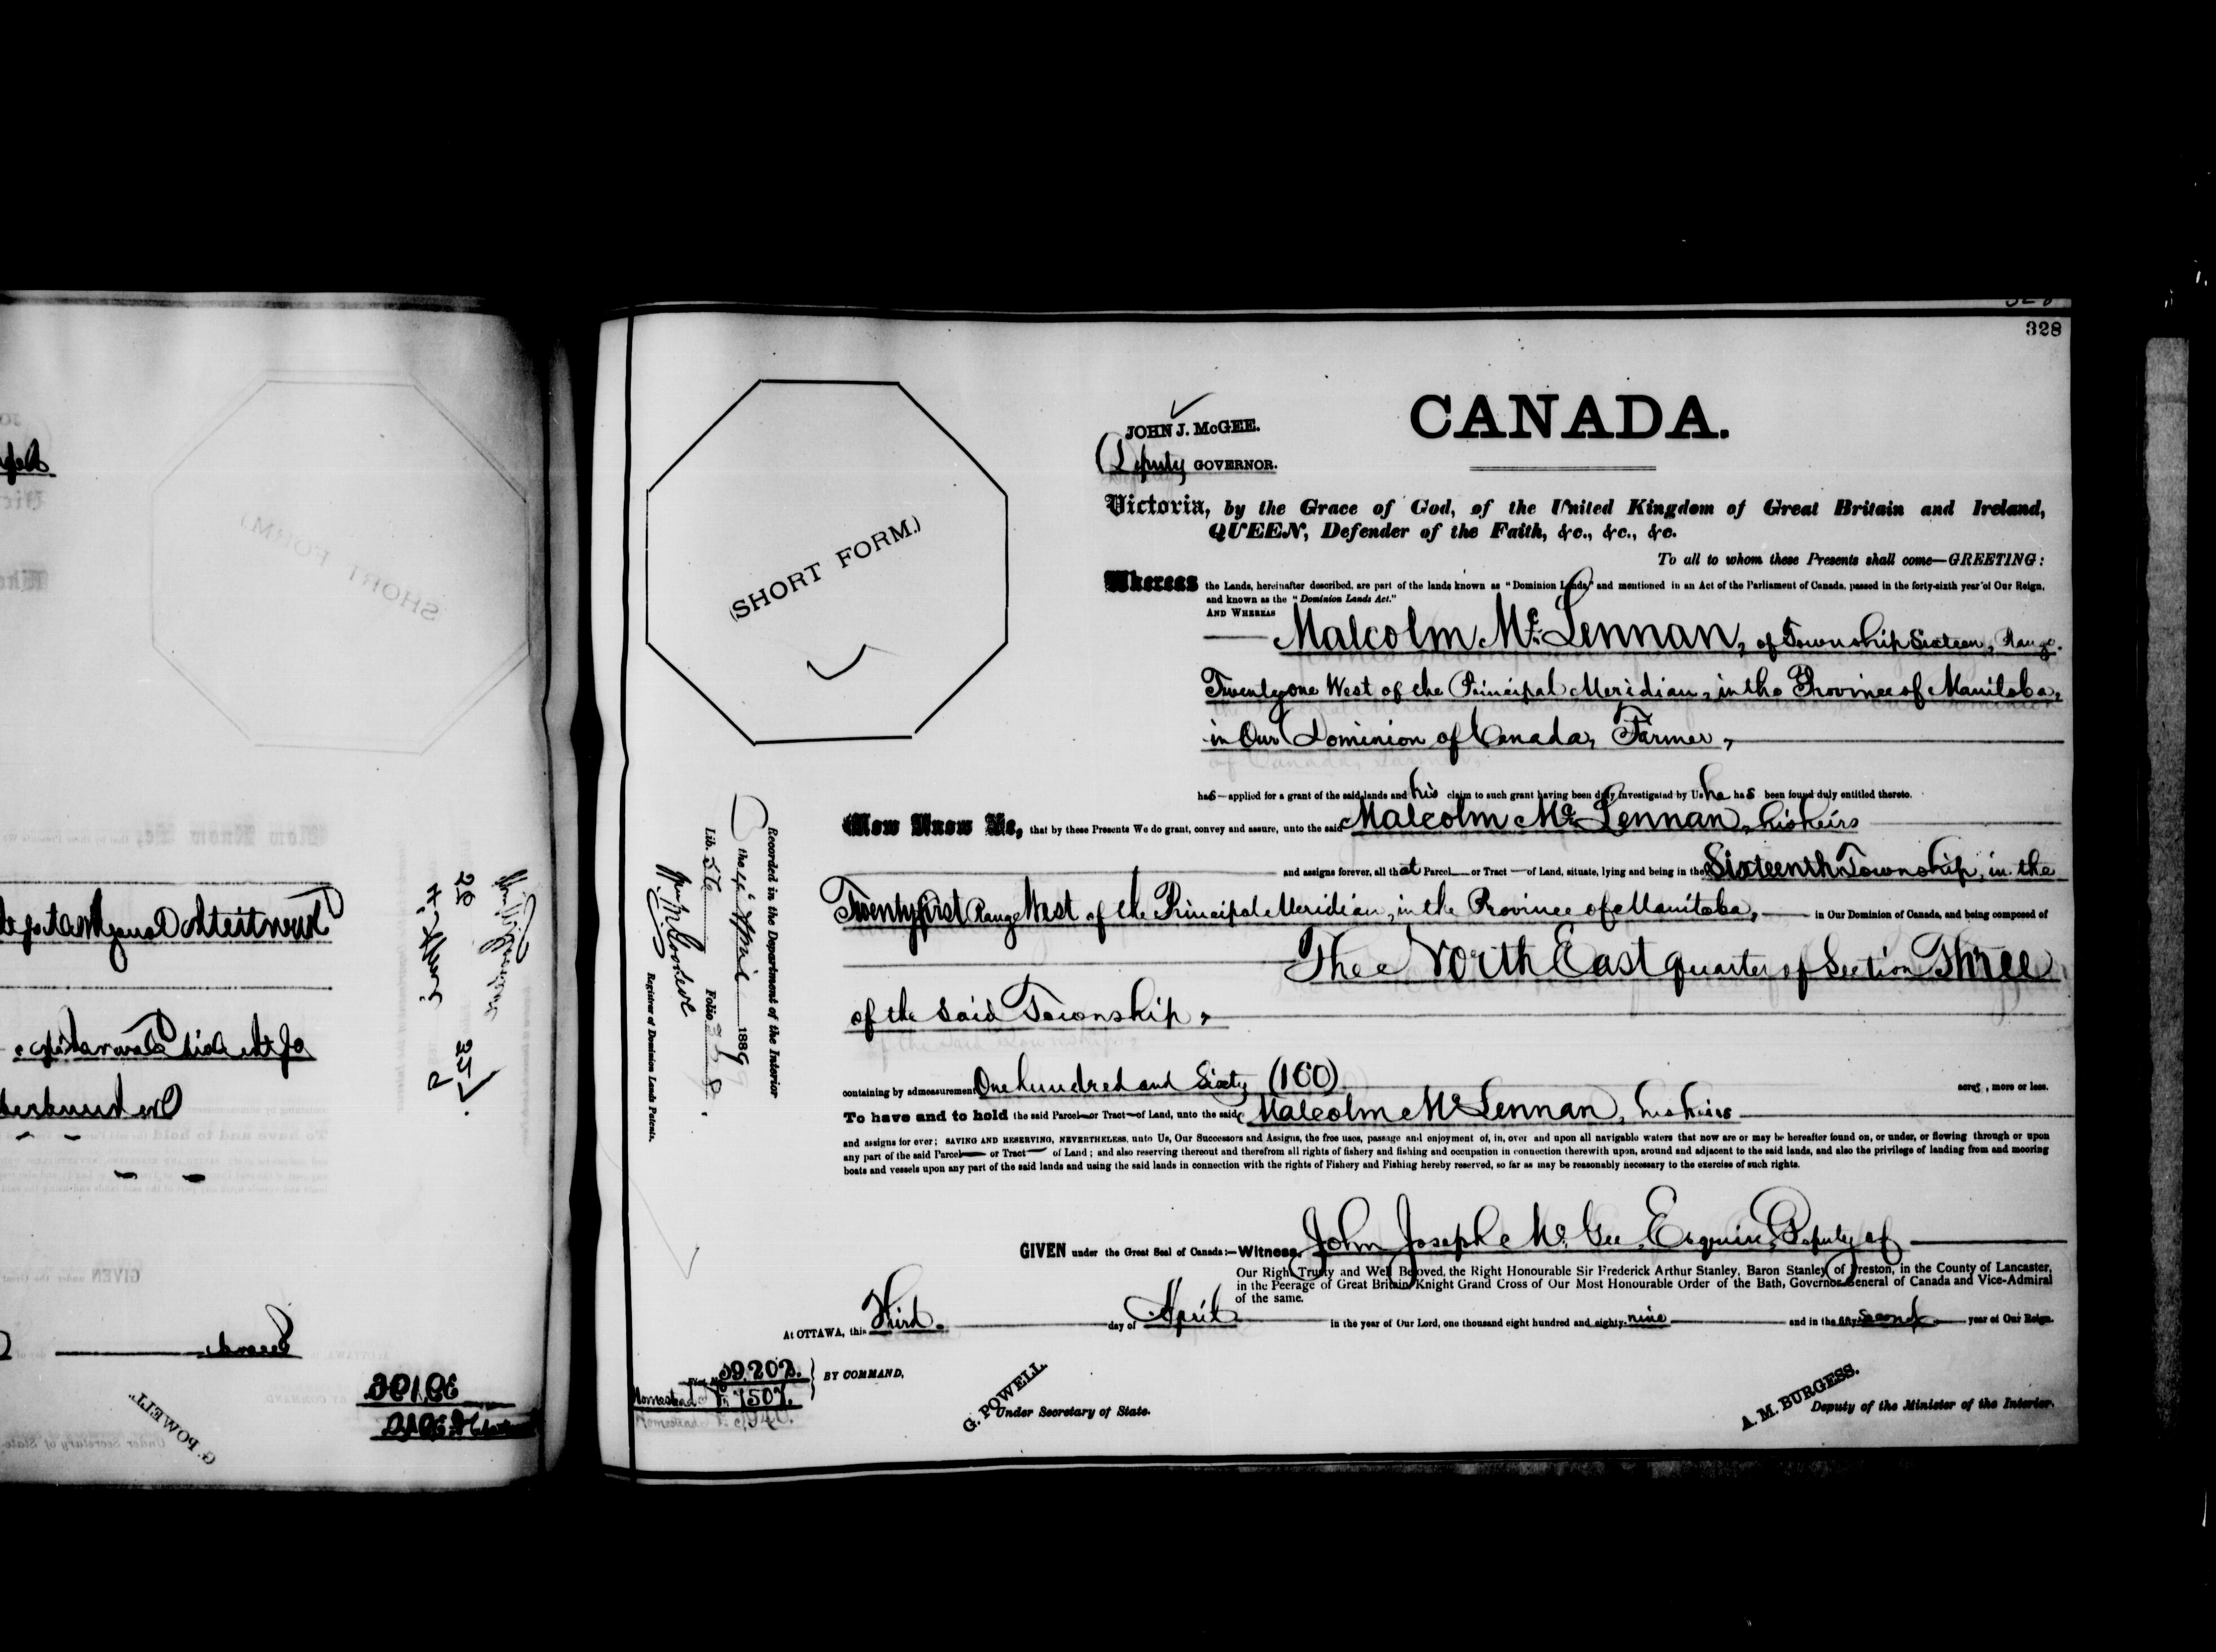 328
CANADA.
JOHN J. McGEE.
Deputy GOVERNOR.
(SHORT FORM.)
Victoria, by the Grace of God, of the United Kingdom of Great Britain and Ireland,
QUEEN, Defender of the Faith, &c., &c., &c.
To all to whom these Presents shall come—GREETING:
Whereas the Lands, hereinafter described, are part of the lands known as "Dominion Lands," and mentioned in an Act of the Parliament of Canada, passed in the forty-sixth year of Our Reign,
and known as the "Dominion Lands Act."
AND WHEREAS
Malcolm McLennan, of Township Sixteen, Range
Twenty one West of the Principal Meridian, in the Province of Manitoba,
in Our Dominion of Canada, Farmer,
has applied for a grant of the said lands and his claim to such grant having been duly investigated by Us he has been found duly entitled thereto.
Now Know Ye, that by these Presents We do grant, convey and assure, unto the said Malcolm McLennan, his heirs
and assigns forever, all that Parcel or Tract of Land, situate, lying and being in the Sixteenth Township, in the
Twenty first Range West of the Principal Meridian, in the Province of Manitoba, in Our Dominion of Canada, and being composed of
The North East quarter of Section Three
of the said Township,
containing by admeasurement One hundred and Sixty (160) acres, more or less.
To have and to hold the said Parcel or Tract of Land, unto the said Malcolm McLennan, his heirs
and assigns for ever; SAVING AND RESERVING, NEVERTHELESS, unto Us, Our Successors and Assigns, the free uses, passage and enjoyment of, in, over and upon all navigable waters that now are or may be hereafter found on, or under, or flowing through or upon
any part of the said Parcel or Tract of Land; and also reserving thereout and therefrom all rights of fishery and fishing and occupation in connection therewith upon, around and adjacent to the said lands, and also the privilege of landing from and mooring
boats and vessels upon any part of the said lands and using the said lands in connection with the rights of Fishery and Fishing hereby reserved, so far as may be reasonably necessary to the exercise of such rights.
GIVEN under the Great Seal of Canada:—Witness, John Joseph McGee, Esquire, Deputy of
Our Right Trusty and Well Beloved, the Right Honourable Sir Frederick Arthur Stanley, Baron Stanley of Preston, in the County of Lancaster,
in the Peerage of Great Britain, Knight Grand Cross of Our Most Honourable Order of the Bath, Governor General of Canada and Vice-Admiral
of the same.
At OTTAWA, this Third day of April in the year of Our Lord, one thousand eight hundred and eighty-nine and in the fifty second year of Our Reign.
BY COMMAND,
Homestead
G. POWELL.
Under Secretary of State.
A. M. BURGESS.
Deputy of the Minister of the Interior.
Recorded in the Department of the Interior
the April 1889
Lib. Folio
Registrar of Dominion Lands Patents.